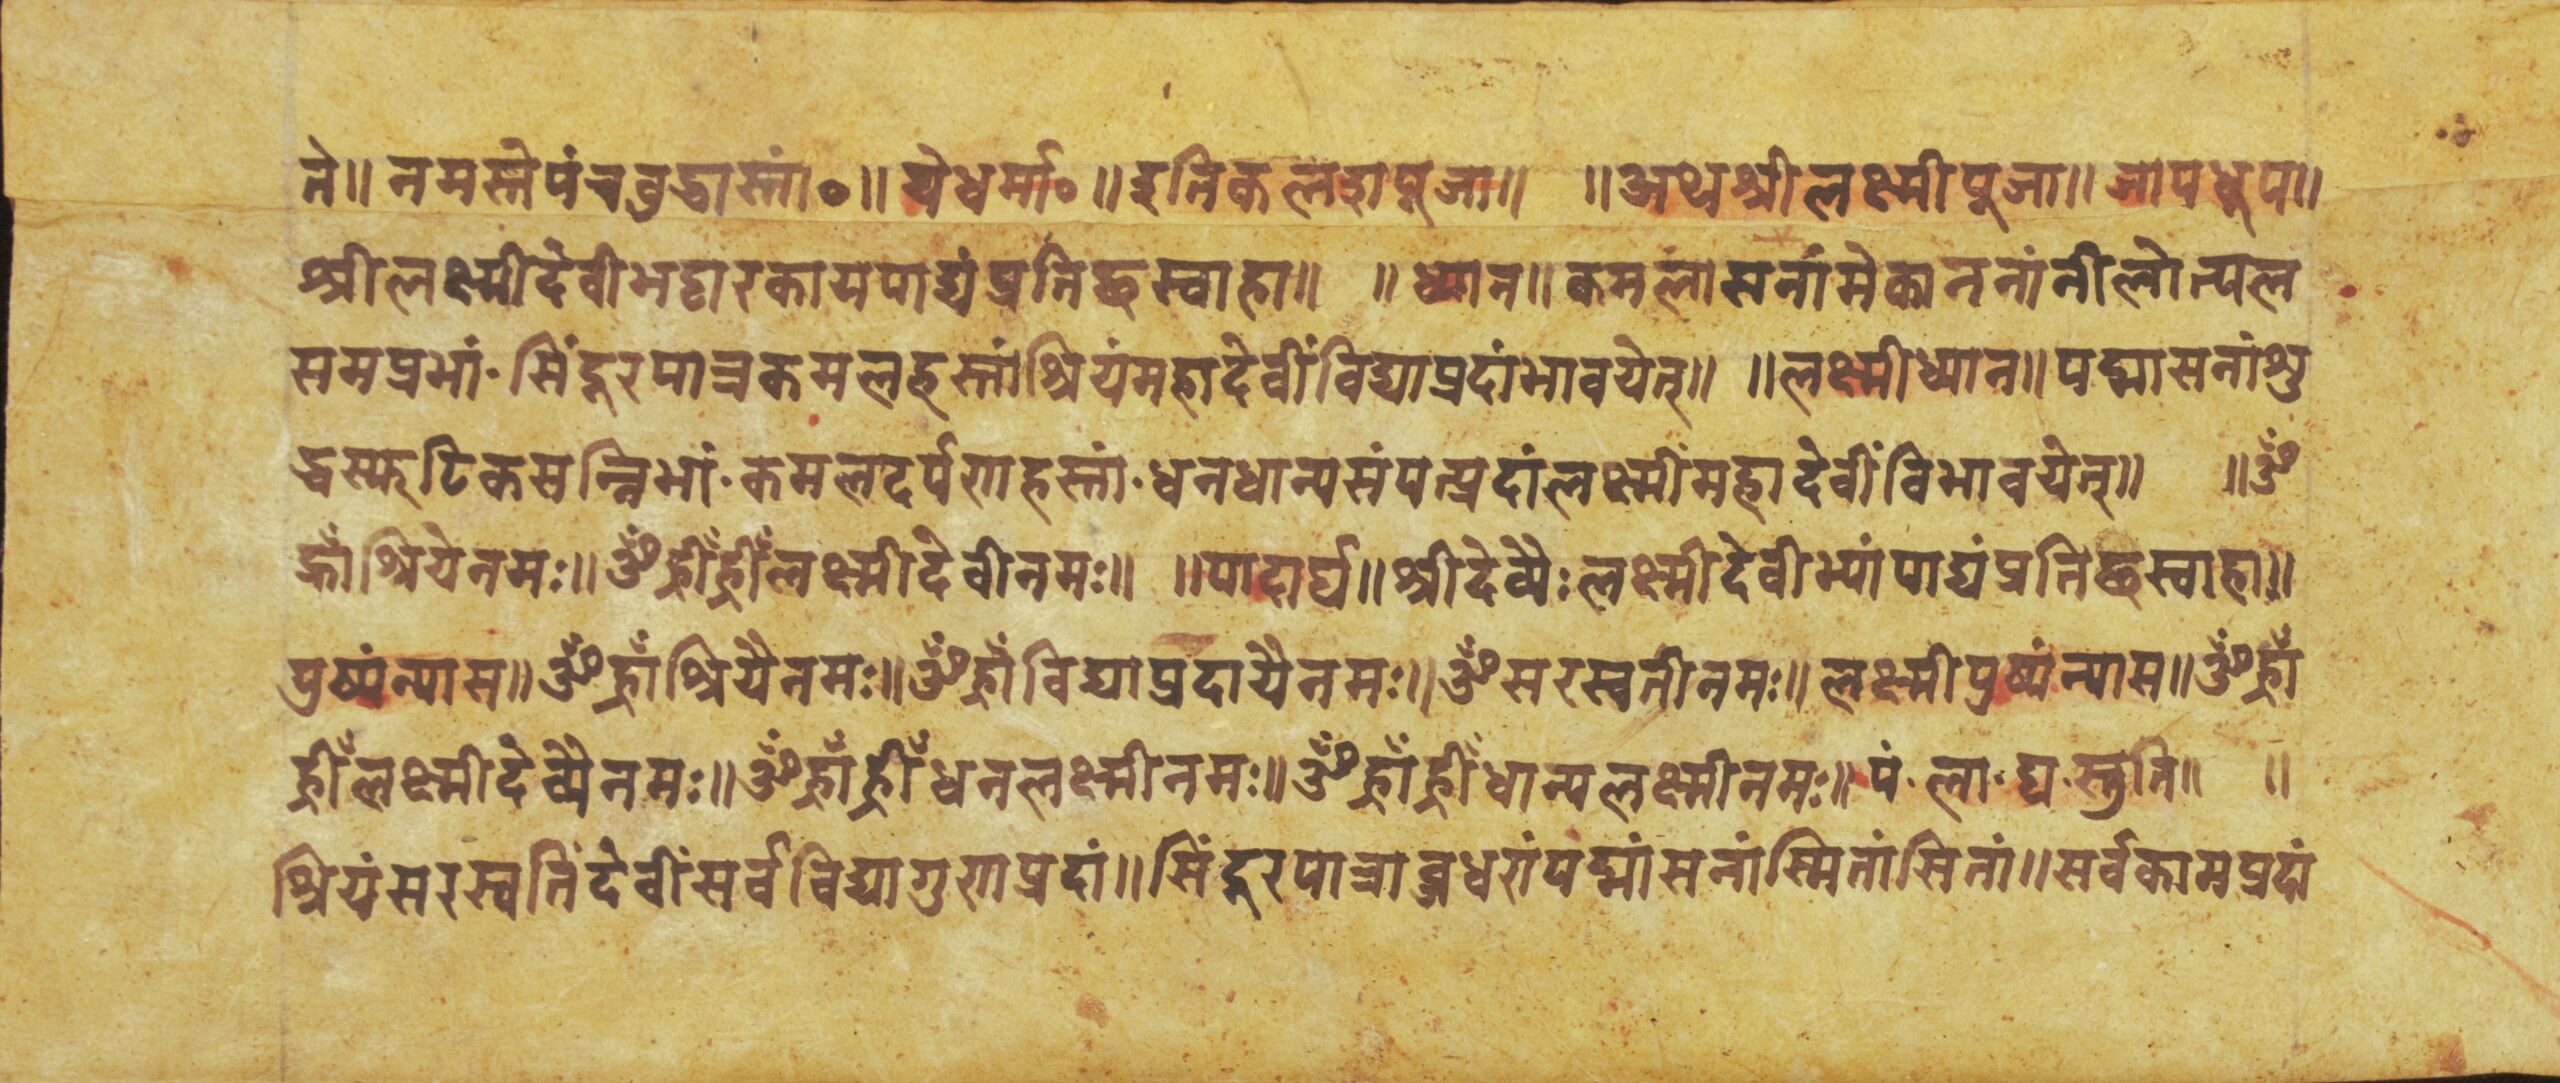 ते॥ नमस्तेपंचवुद्धास्तां०॥ येधर्मा०॥ इतिकलशपूजा॥ ॥अथश्रीलक्ष्मीपूजा॥ जापधूप॥
श्रीलक्ष्मीदेवीभट्टारकायपाद्यंप्रतिच्छस्वाहा॥ ॥ध्यान॥ कमलासनांमेकाननांनीलोत्पल
समप्रभां· सिंदूरपात्रकमलहस्तांश्रियंमहादेवींविद्याप्रदांभावयेत्॥ ॥लक्ष्मीध्यान॥ पद्मासनांशु
द्धस्फटिकसन्निभां· कमलदर्पणहस्तां· धनधान्यसंपत्प्रदांलक्ष्मींमहादेवींविभावयेत्॥ ॥ॐ
ह्राँश्रियेनमः॥ ॐह्रीँह्रीँलक्ष्मीदेवीनमः॥ ॥पादार्घ॥ श्रीदेव्यैः लक्ष्मीदेवीभ्यांपाद्यंप्रतिच्छस्वाहा॥
पुष्पंन्यास॥ ॐह्राँश्रियैनमः॥ ॐह्राँविद्याप्रदायैनमः॥ ॐसरस्वतीनमः॥ लक्ष्मीपुष्पंन्यास॥ ॐह्राँ
ह्रीँलक्ष्मीदेव्यैनमः॥ ॐह्राँह्रीँधनलक्ष्मीनमः॥ ॐह्राँह्रीँधान्यलक्ष्मीनमः॥ पं· ला· घ· स्तुति॥ ॥
श्रियंसरस्वतिंदेवींसर्वविद्यागुणप्रदां॥ सिंदूरपात्राब्जधरांपद्मांसनांस्मितांसितां॥ सर्वकामप्रदां